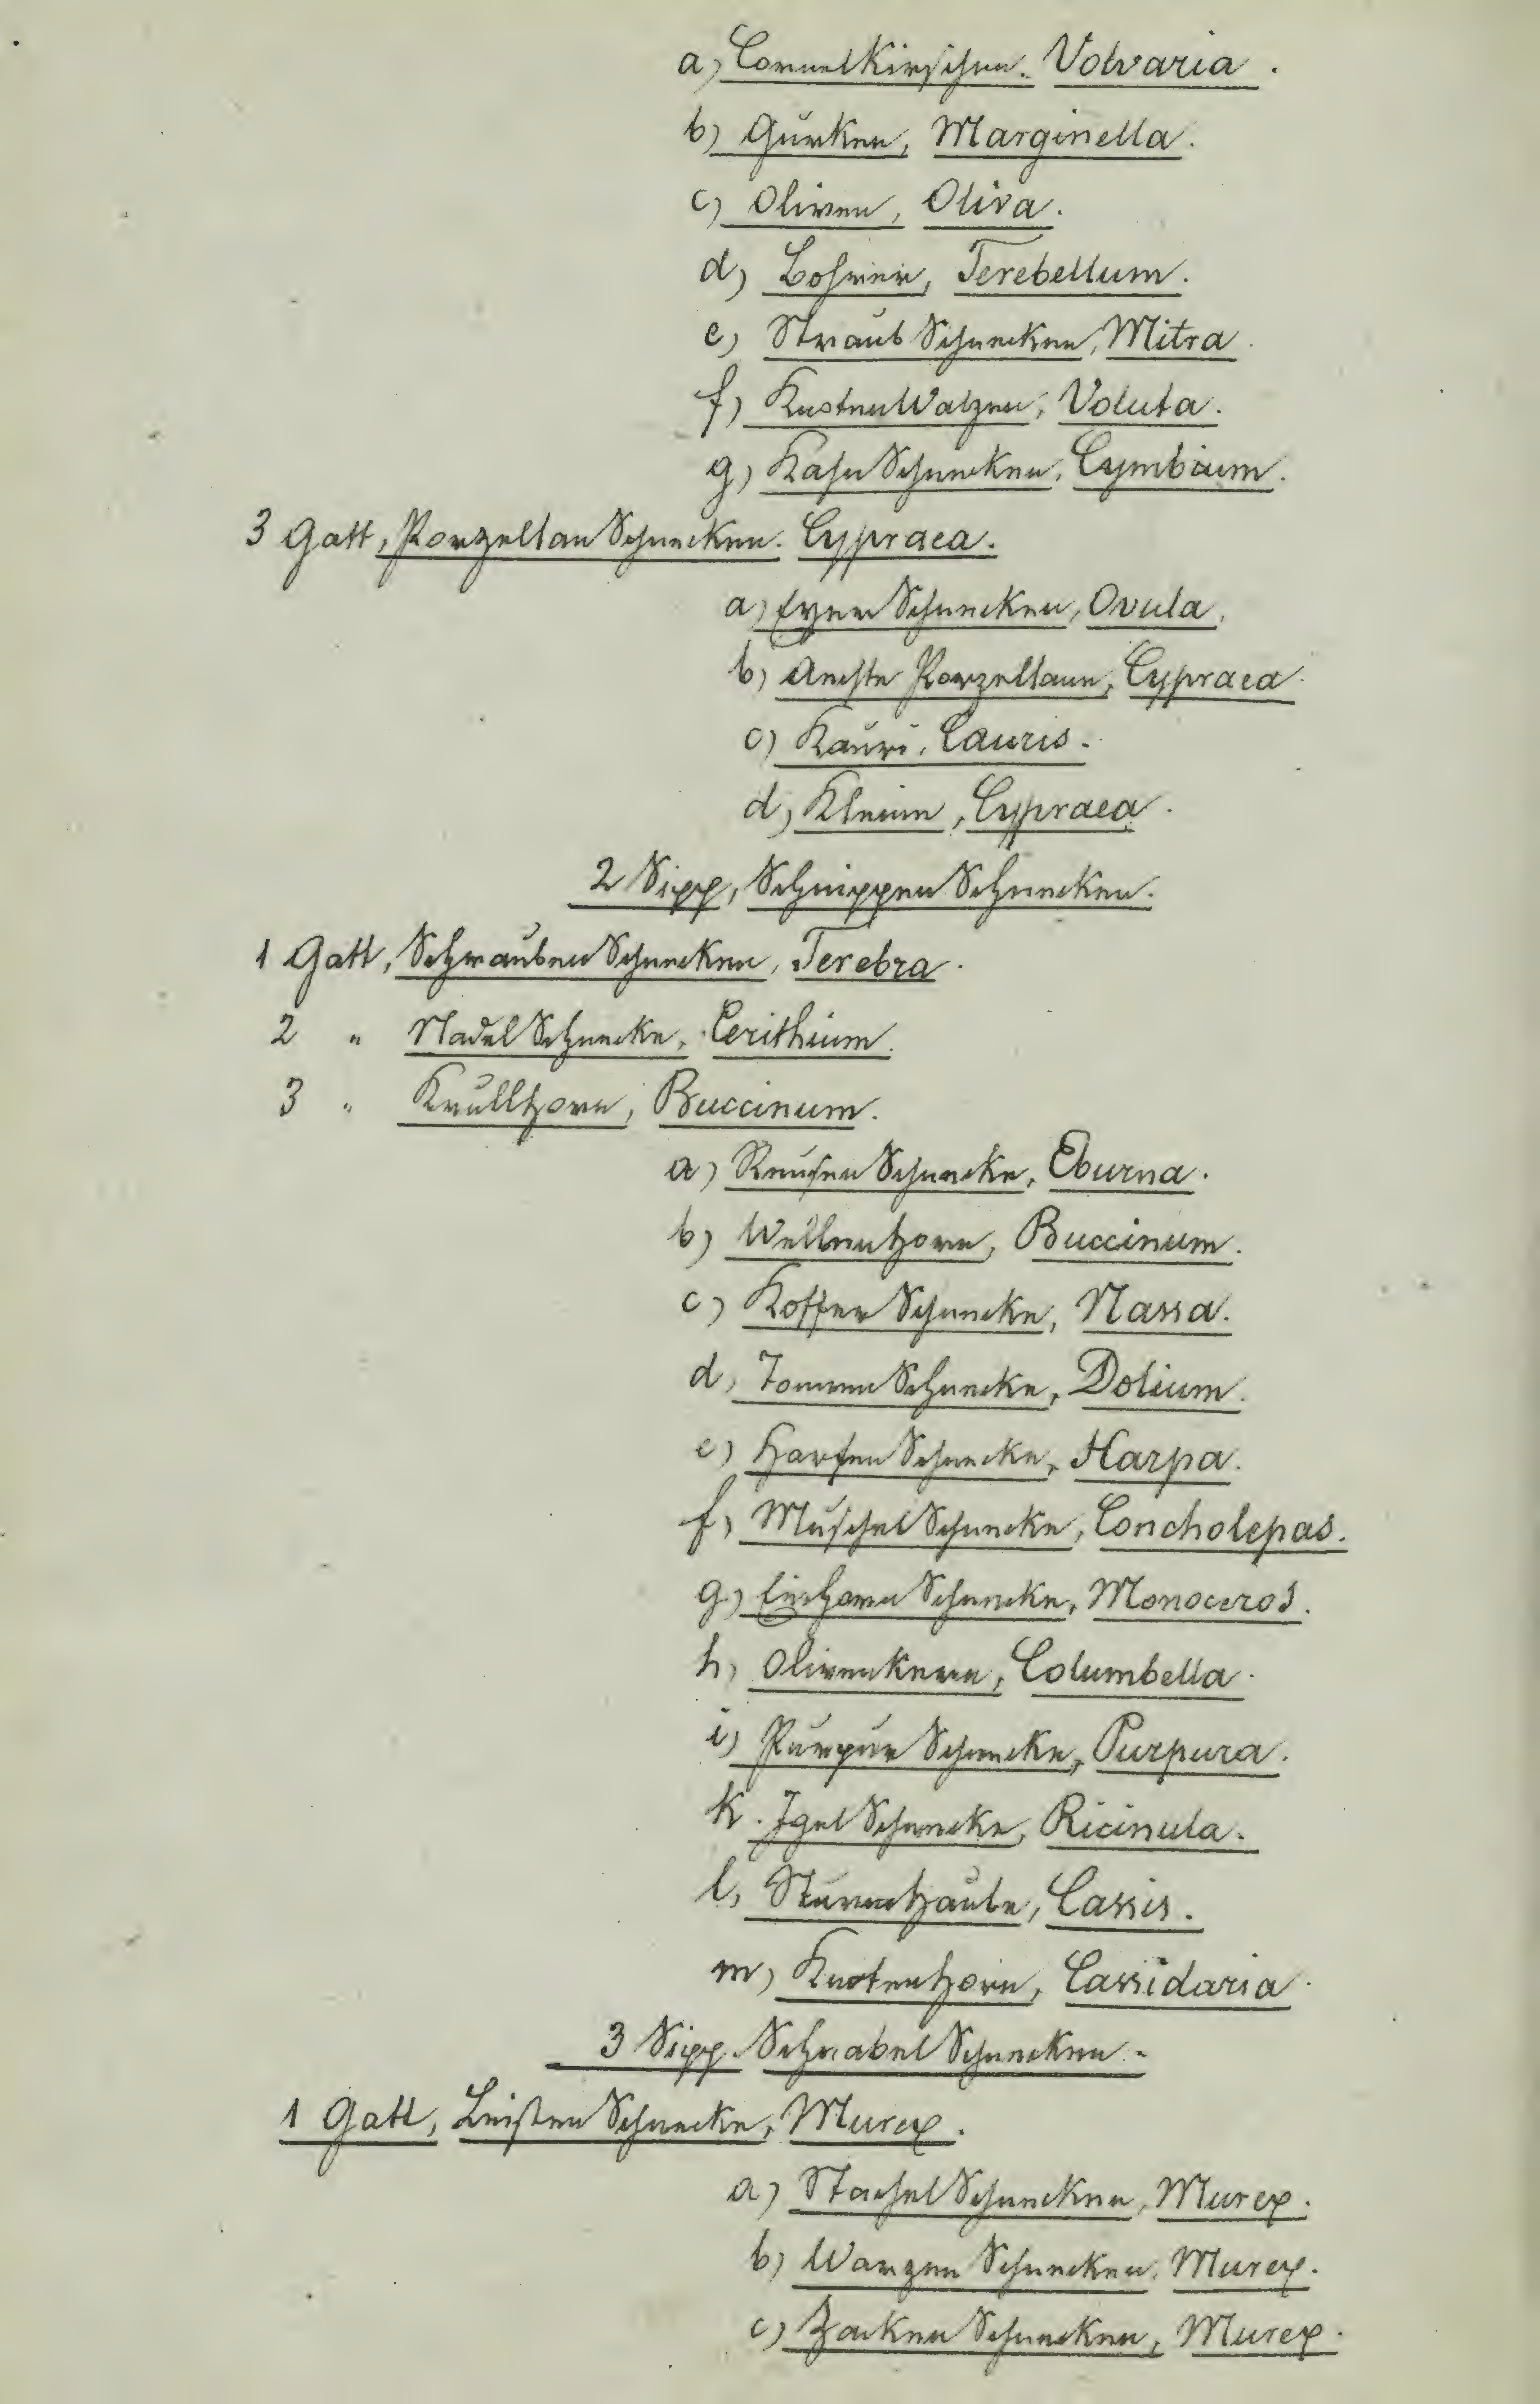 a) CornelKirschen. Volvaria.
b) Gurken, Marginella.
c) Oliven, Oliva.
d) Bohrer, Terebellum.
e) StraubSchnecken, Mitra.
f) KnotenWalzen, Voluta.
g) KahnSchnecken, Cymbium.
3 Gatt, PorzellanSchnecken. Cypraea.
a) EyerSchnecken, Ovula,
b) Aechte Porzellane, Cypraea.
c) Kauri, Cauris.
d) Kleine, Cypraea.
2 Sipp, SchnippenSchnecken.
1 Gatt, SchraubenSchnecken, Terebra.
2 " NadelSchnecke, Cerithium.
3 " Krullhorn, Buccinum.
a) ReusenSchnecke, Eburna.
b) Wellenhorn, Buccinum.
c) KofferSchnecke, Nassa.
d, TonnenSchnecke, Dolium.
e) HarfenSchnecke, Harpa.
f, MuschelSchnecke, Concholepas.
g) EinhornSchnecke, Monoceros.
h, Olivenkern, Columbella.
i) PurpurSchnecke, Purpura.
k. IgelSchnecke, Ricinula.
l, Sturmhaube, Cassis.
m, Knotenhorn, Cassidaria.
3 Sipp. SchnabelSchnecken.
1 Gatt, LeistenSchnecke, Murex.
a) StachelSchnecken, Murex.
b) WarzenSchnecken, Murex.
c) ZackenSchnecken, Murex.